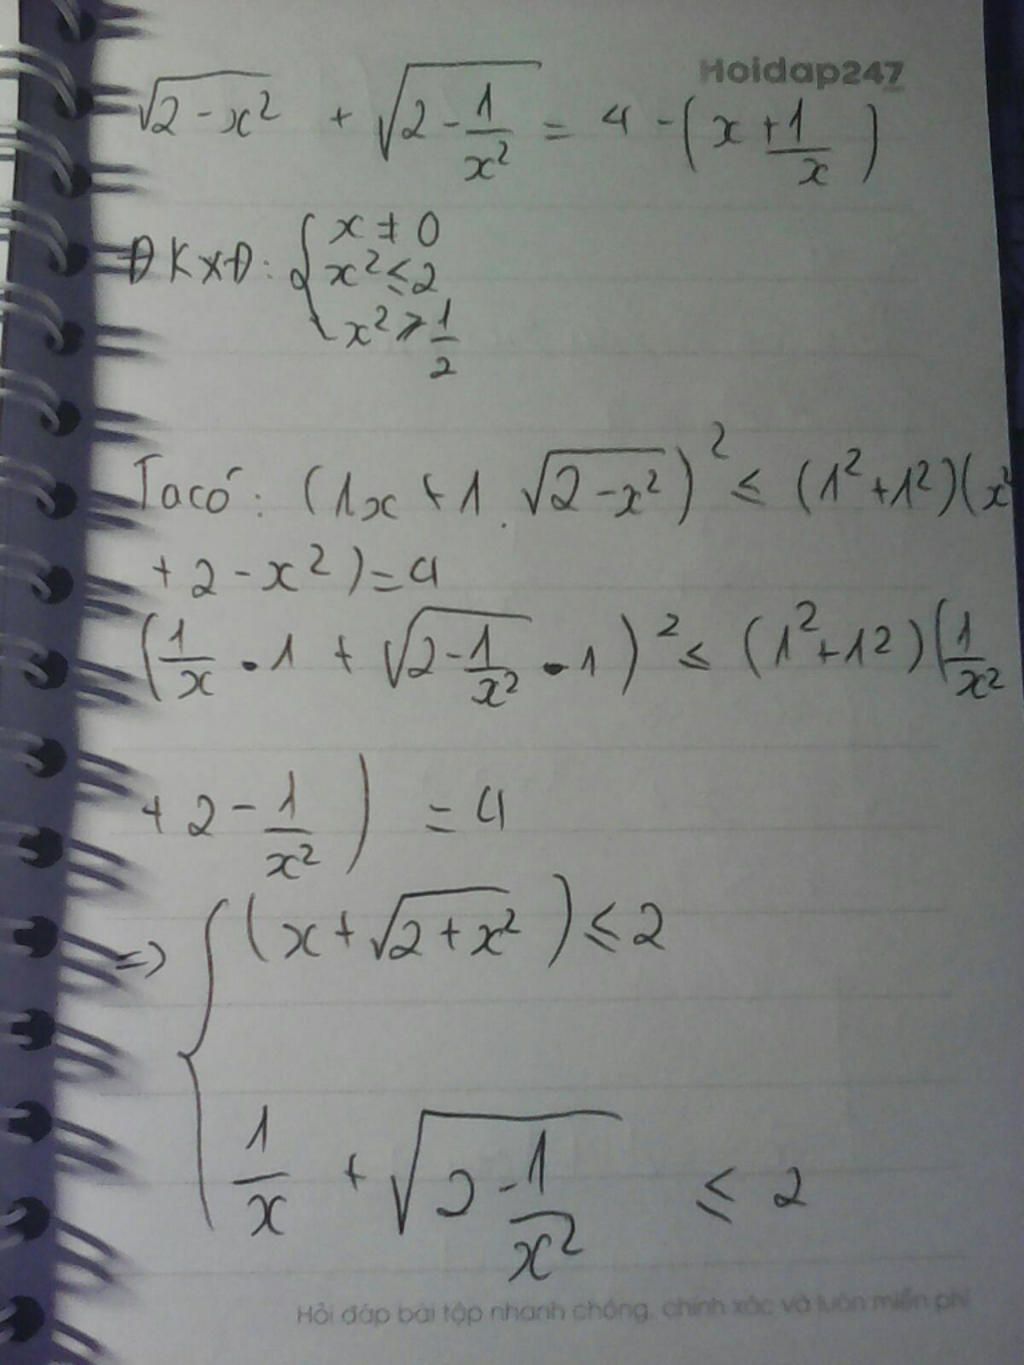 Hoidap247
√(2 - x²) + √(2 - 1/x²) = 4 - (x + 1/x)
ĐKXĐ: { x ≠ 0
x² ≤ 2
x² ≥ 1/2
Ta có: (1x + 1.√(2 - x²))² ≤ (1² + 1²)(x²
+ 2 - x²) = 4
(1/x • 1 + √(2 - 1/x²) • 1)² ≤ (1² + 1²)(1/x²
+ 2 - 1/x²) = 4
=> { (x + √(2 + x²)) ≤ 2
1/x + √(2 - 1/x²) ≤ 2
Hỏi đáp bài tập nhanh chóng, chính xác và luôn miễn phí